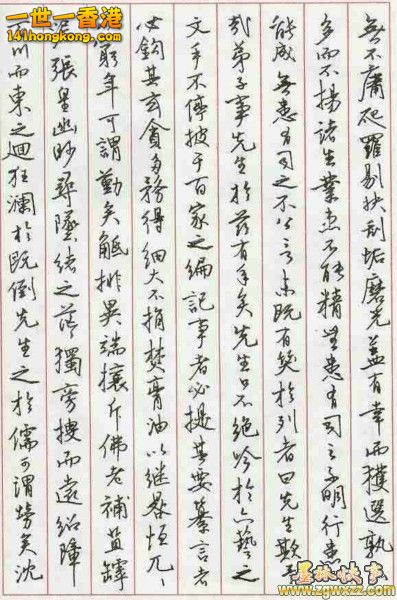 一世一香港
141hongkong.com
無不庸爬羅剔抉刮垢磨光蓋有幸而獲選孰
多而不揚諸生業患不能精無患有司之不明行患
能成無患有司之不公言未既有笑於列者曰先生欺予
哉弟子事先生於茲有年矣先生口不絕吟於六藝之
文手不停披于百家之編記事者必提其要纂言者
必鉤其玄貪多務得細大不捐焚膏油以繼晷恒兀々
窮年可謂勤矣觝排異端攘斥佛老補苴罅
張皇幽眇尋墜緒之茫獨旁搜而遠紹障
百川而東之迴狂瀾於既倒先生之於儒可謂勞矣沈
墨林快事
www.zgwxzz.com